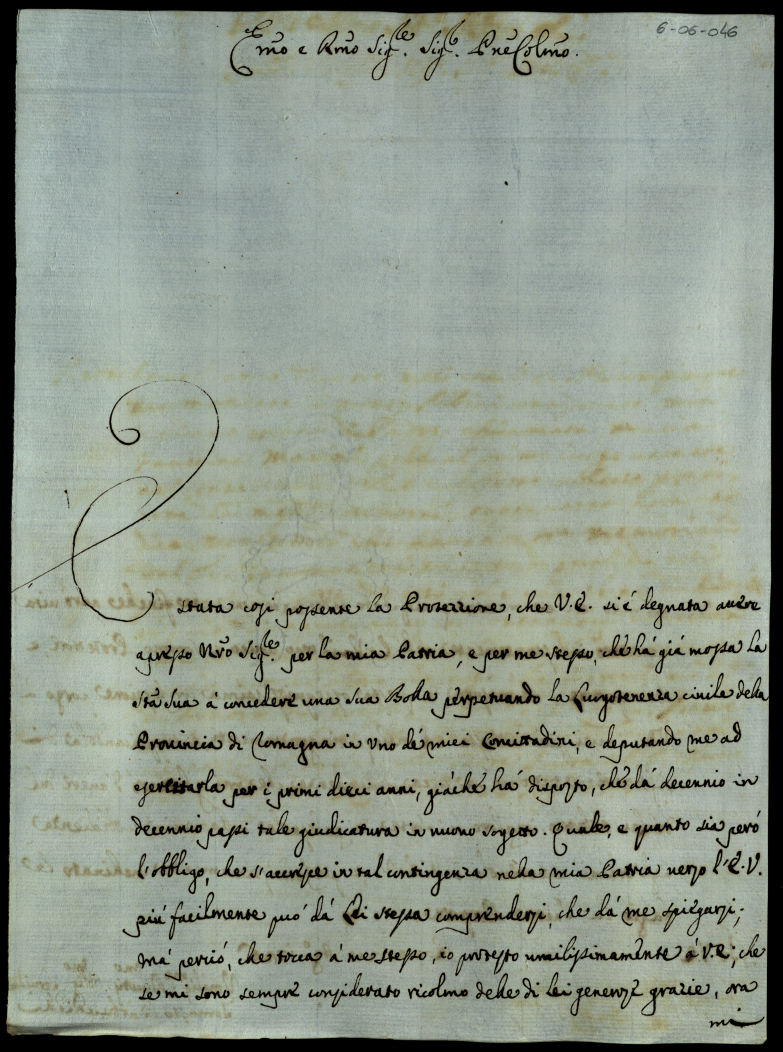 6-06-046
Em̃o e Rm̃o Sig.re Sig.re Pne Colmõ.
È stata così possente la Protezzione, che V.E. si è degnata avere
apresso Nrõ Sig.re per la mia Patria, e per me stesso, che há giá mossa la
Stã Sua á concedere una sua Bolla perpetuando la Luogotenenza civile della
Provincia di Romagna in uno dé miei Concittadini, e deputando me ad
esercitarla per i primi dieci anni, giáché há disposto, ché dá decennio in
decennio passi tale giudicatura in nuovo sogetto. Quale, e quanto sia peró
l'obbligo, che s'accresce in tal contingenza nella mia Patria verso l'E.V.
piú facilmente puó dá Lei stessa comprendersi, che dá me spiegarsi;
Má perció, che tocca á me stesso, io protesto umilissimamente á V.E; che
se mi sono sempre considerato ricolmo delle di lei generose grazie, ora
mi